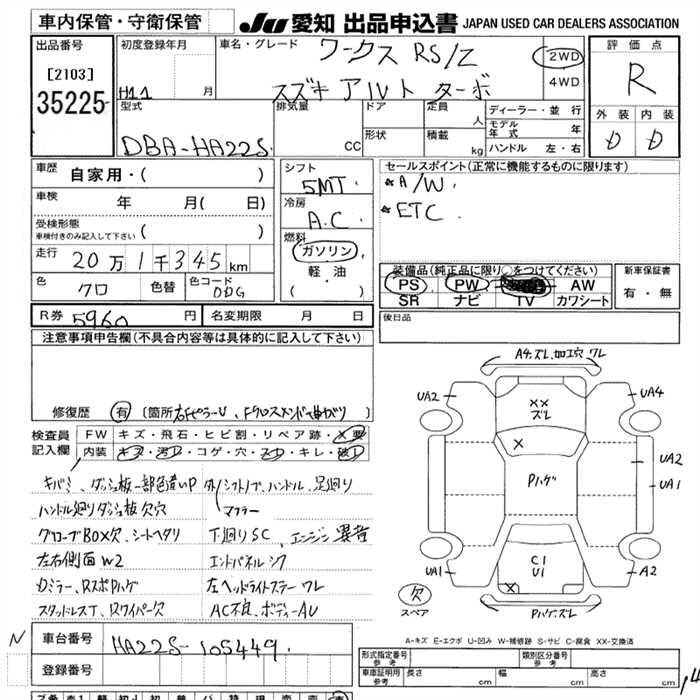 車内保管・守衛保管
JU 愛知 出品申込書 JAPAN USED CAR DEALERS ASSOCIATION
出品番号
[2103]
35225
初度登録年月
H11 月
車名・グレード
ワークス RS/Z
スズキ アルト ターボ
2WD
4WD
評価点
R
外装 内装
D D
型式
DBA-HA22S
排気量
CC
ドア
形状
定員 人
積載 kg
ディーラー・並行
モデル年式 年
ハンドル 左・右
車歴
自家用・( )
車検 年 月( 日)
受検形態
車検付きのみ記入して下さい ( )
走行 20万1千345km
色 クロ 色替 色コード DDG
シフト
5MT.
冷房
A.C
燃料
ガソリン
軽・油
( )
セールスポイント(正常に機能するものに限ります)
A/W.
ETC
装備品(純正品に限り○をつけてください)
PS PW AW
SR ナビ TV カワシート
新車保証書
有・無
R券 5960 円 名変期限 月 日
後日品
注意事項申告欄(不具合内容等は具体的に記入して下さい)
修復歴 有 (箇所 右FピラーU、Fクロスメンバ曲がり)
検査員記入欄
FW キズ・飛石・ヒビ割・リペア跡・X要
内装 キズ・汚D・コゲ・穴・スD・キレ・破D
キバミ、ダッシュ板一部色違いP
ハンドル廻りダッシュ板欠穴
グローブBOX欠、シートヘタリ
左右側面W2
Dミラー、RスポPハゲ
スタッドレスT、Rワイパー欠
外/シフトノブ、ハンドル、足廻り
マフラー
下廻りSC、エンジン異音
エンドパネルシワ
左ヘッドライトステーワレ
AC不良、ボディーAU
A4.ズレ,加工穴 ワレ
UA2
XX
ズレ
UA4
X
Pハゲ
UA2
UA1
UA1
C1
U1
X
A2
欠
スペア
Pハゲ.ズレ
A-キズ E-エクボ U-凹み W-補修跡 S-サビ C-腐食 XX-交換済
N
車台番号 HA22S-105449.
登録番号
形式指定番号
参考
類別区分番号
参考
車庫証明用
参考
長さ cm 幅 cm 高さ cm